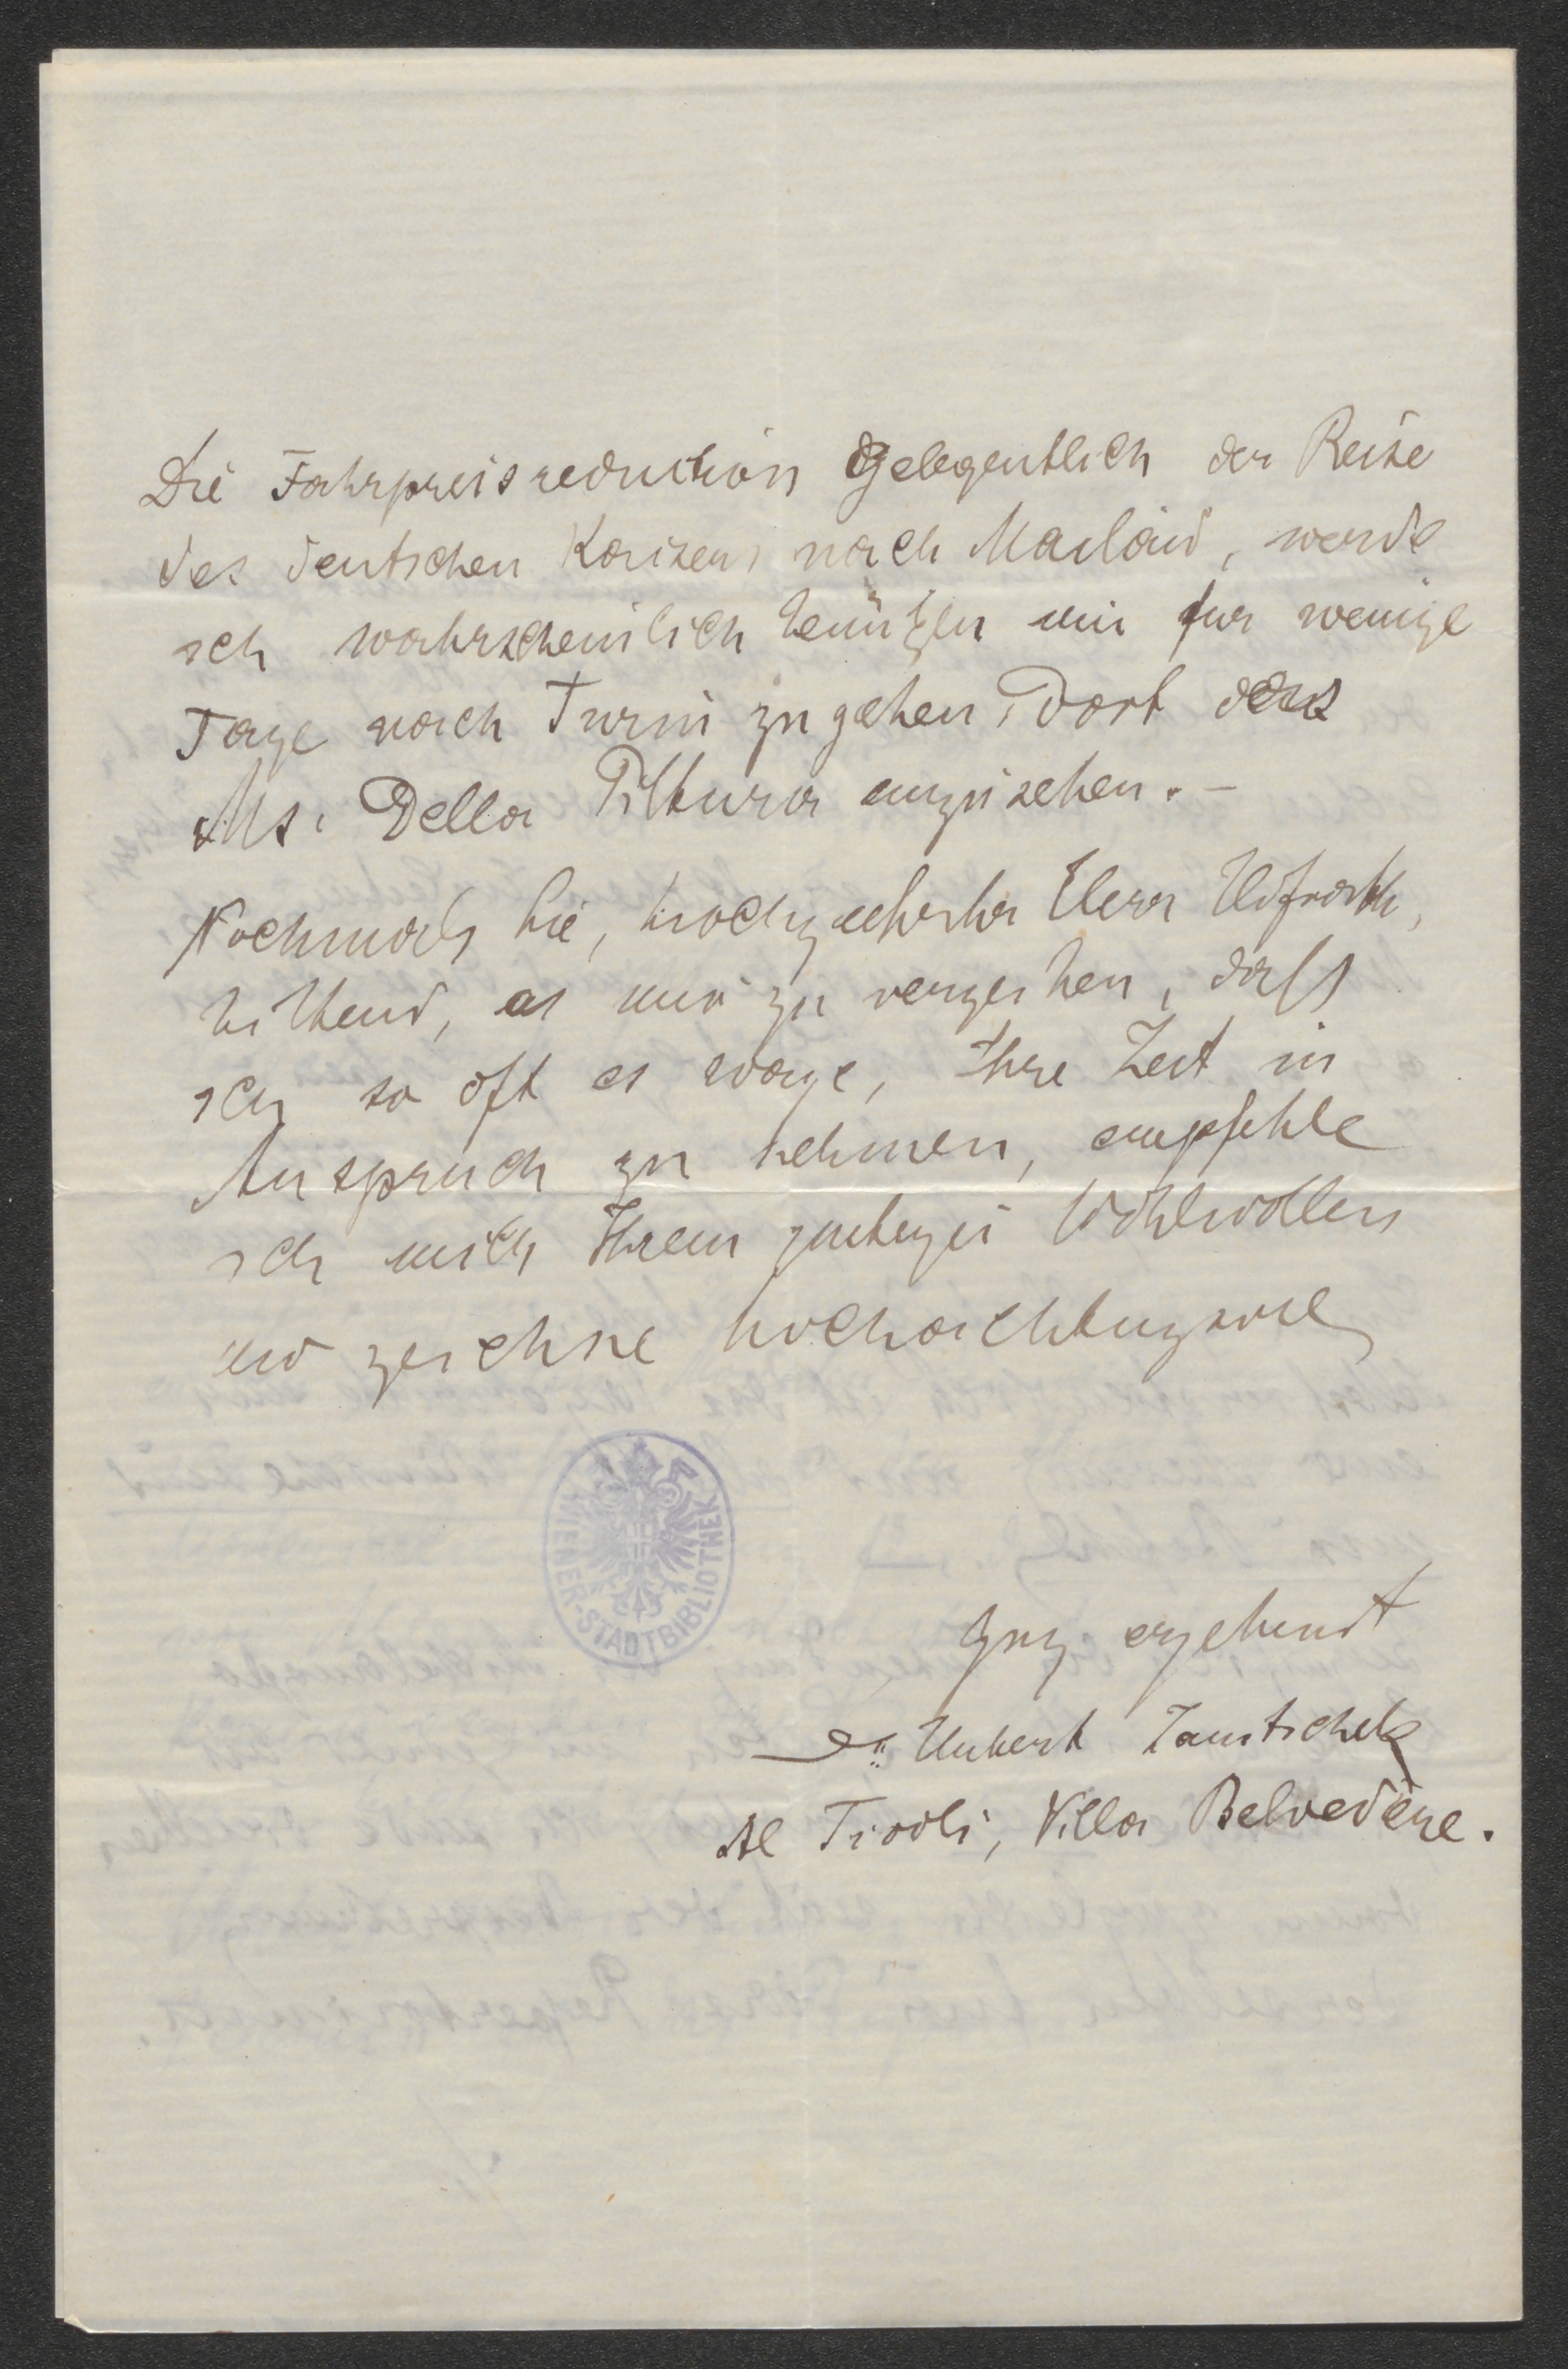 Die Fahrpreisreduction gelegentlich der Reise
des deutschen Kaisers nach Mailand, werde
ich wahrscheinlich benützen um für wenige
Tage nach Turin zu gehen, dort das
Ms. Della Pittura anzusehen. –
Nochmals Sie, hochgeehrter Herr Hofrath,
bittend, es mir zu verzeihen, daß
ich so oft es wage, Ihre Zeit in
Anspruch zu nehmen, empfehle
ich mich Ihrem gütigen Wohlwollen
und zeichne hochachtungsvoll
WIENER-STADTBIBLIOTHEK
Ganz ergebenst
Dr. Hubert Janitschek
Al Tivoli, Villa Belvedere.